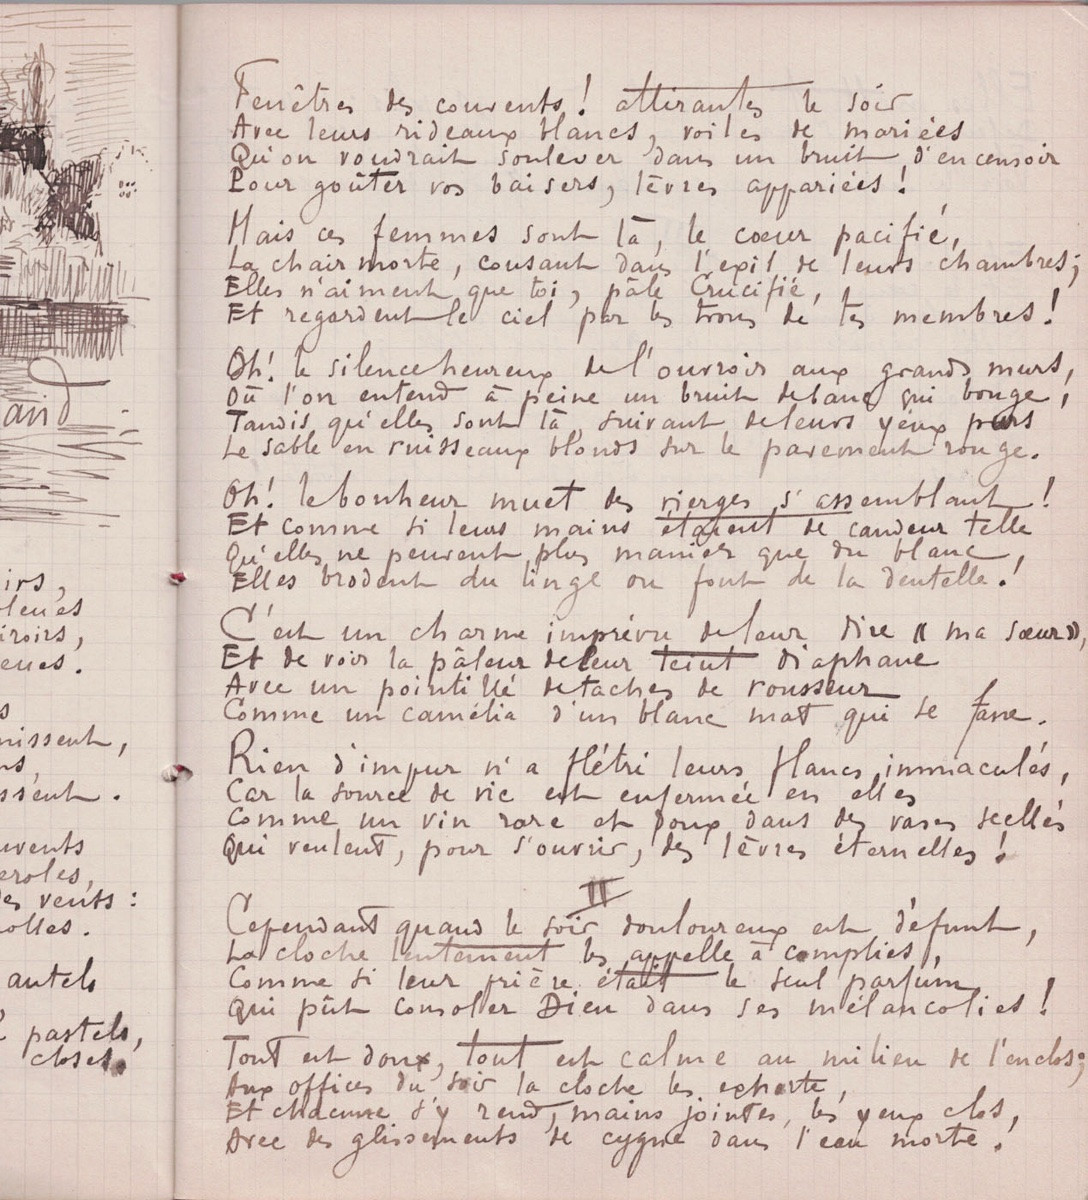 and
irs,
bleues
iroirs,
eues.
s
nissent,
ns,
ssent.
uvents
eroles,
des vents :
olles.
autels
pastels,
closes.
Fenêtres des couvents ! attirantes le soir
Avec leurs rideaux blancs, voiles de mariées
Qu'on voudrait soulever dans un bruit d'encensoir
Pour goûter vos baisers, lèvres appariées !
Mais ces femmes sont là, le cœur pacifié,
La chair morte, cousant dans l'exil de leurs chambres ;
Elles n'aiment que toi, pâle Crucifié,
Et regardent le ciel par les trous de tes membres !
Oh ! le silence heureux de l'ouvroir aux grands murs,
Où l'on entend à peine un bruit de banc qui bouge,
Tandis qu'elles sont là, suivant de leurs yeux purs
Le sable en ruisseaux blonds sur le pavement rouge.
Oh ! le bonheur muet des vierges s'assemblant !
Et comme si leurs mains étaient de candeur telle
Qu'elles ne peuvent plus manier que du blanc,
Elles brodent du linge ou font de la dentelle !
C'est un charme imprévu de leur dire « ma sœur »,
Et de voir la pâleur de leur teint diaphane
Avec un pointillé de taches de rousseur
Comme un camélia d'un blanc mat qui se fane.
Rien d'impur n'a flétri leurs flancs immaculés,
Car la source de vie est enfermée en elles
Comme un vin rare et doux dans des vases scellés
Qui veulent, pour s'ouvrir, des lèvres éternelles !
II
Cependant quand le soir douloureux est défunt,
La cloche lentement les appelle à complies,
Comme si leur prière était le seul parfum
Qui pût consoler Dieu dans ses mélancolies !
Tout est doux, tout est calme au milieu de l'enclos ;
Aux offices du soir la cloche les exhorte,
Et chacune s'y rend, mains jointes, les yeux clos,
Avec des glissements de cygne dans l'eau morte.